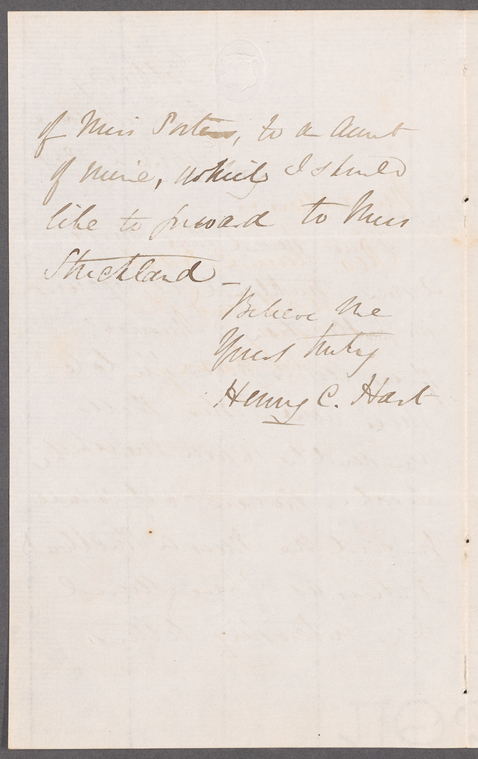 of Miss Porters, to an Aunt
of mine, which I should
like to forward to Miss
Strickland_
Believe me
Yours truly
Henry C. Hart